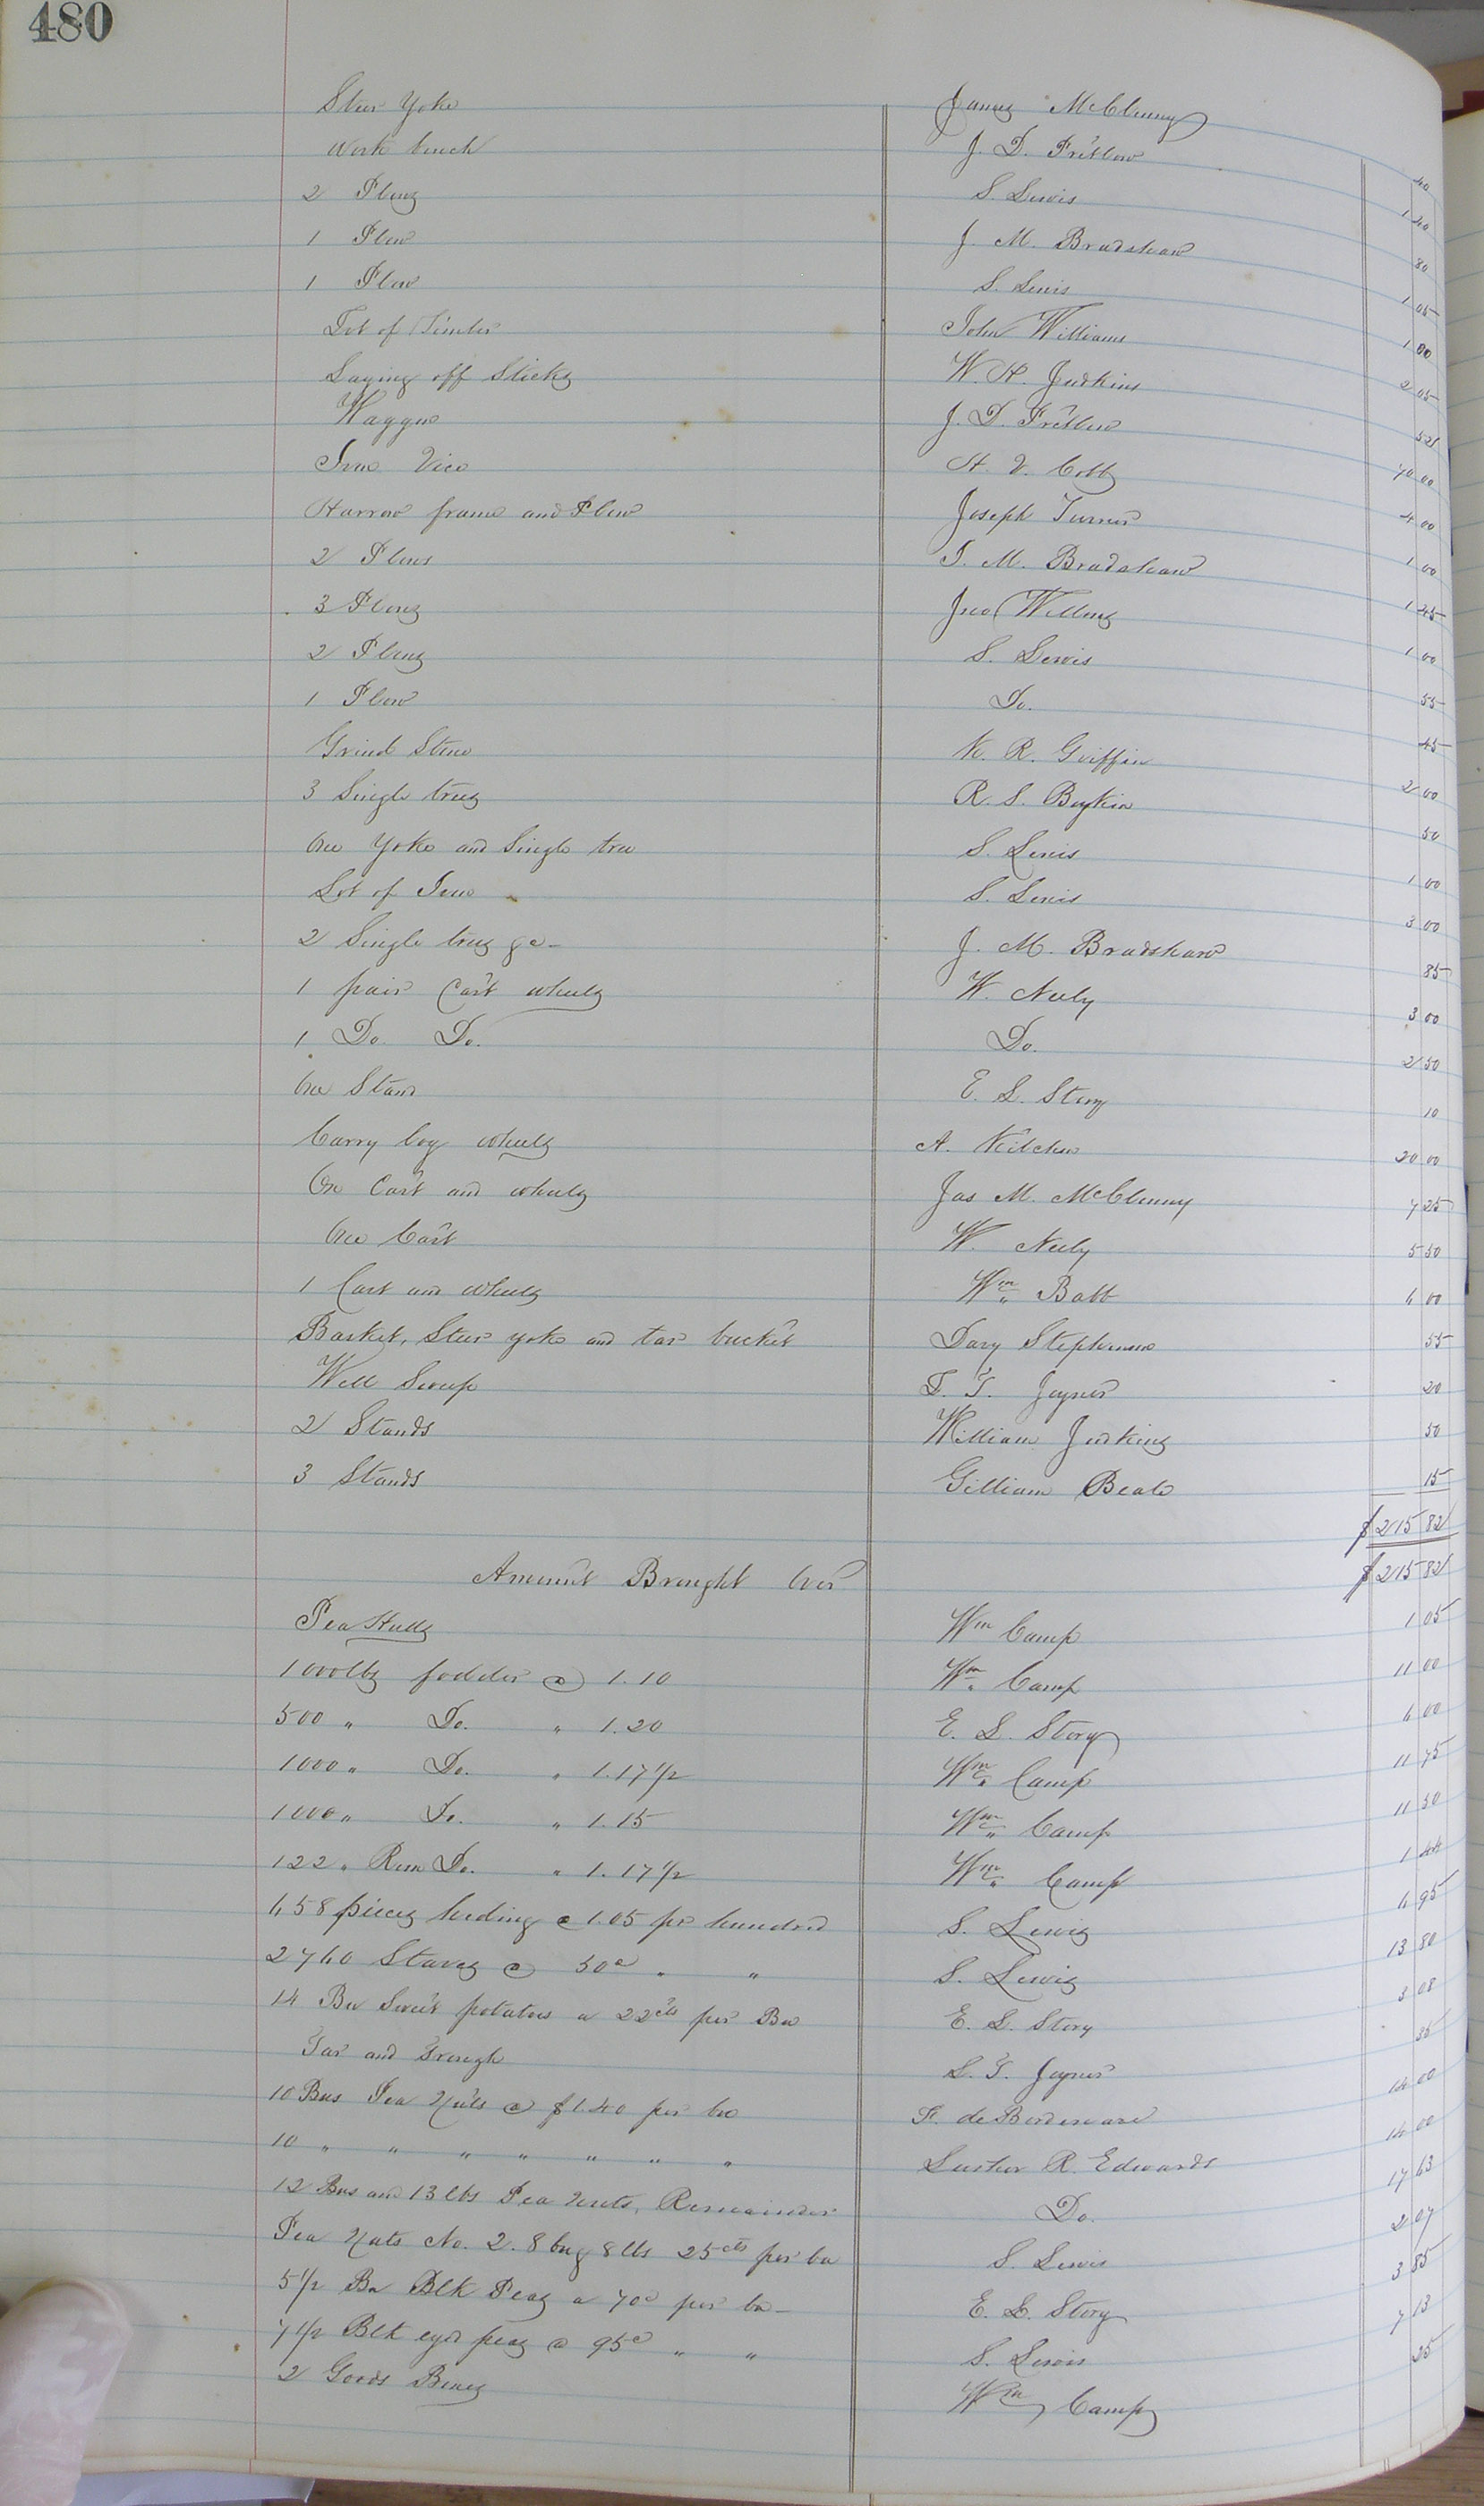 480
Steer Yoke James McClenny 40
Work bench J. D. Fretlow 1 40
2 Plows S. Lewis 80
1 Plow J. M. Bradshaw 1 05
1 Plow S. Lewis 1 00
Lot of Timber John Williams 2 05
Laying off Sticks W. H. Judkins 52
Waggon J. D. Fretlow 70 00
Iron Vice H. V. Cobb 4 00
Harrow frame and Plow Joseph Turner 1 00
2 Plows J. M. Bradshaw 1 45
3 Plows Jno Williams 1 00
2 Plows S. Lewis 55
1 Plow Do. 45
Grind Stone K. R. Griffin 2 00
3 Single trees R. S. Boykin 50
One Yoke and Single tree S. Lewis 1 00
Lot of Iron S. Lewis 3 00
2 Single trees &c- J. M. Bradshaw 85
1 pair Cart wheels W. Neely 3 00
1 Do. Do. Do. 2 50
One Stand E. L. Story 10
Carry log wheels A. Kitchen 20 00
Ox Cart and wheels Jas M. McClenny 7 25
One Cart W. Neely 5 50
1 Cart and wheels Wm. Babb 6 00
Basket, Steer yoke and tar bucket Davy Stephenson 55
Well Sweep L. T. Joyner 20
2 Stands William Judkins 50
3 Stands Gilliam Beale 15
$215 82
Amount Brought Over $215 82
Pea Hulls Wm Camp 1 05
1000lbs fodder @ 1.10 Wm. Camp 11 00
500 " Do. " 1.20 E. L. Story 6 00
1000 " Do. " 1.17 1/2 Wm. Camp 11 75
1000 " Do. " 1.15 Wm. Camp 11 50
122 " Rem Do. " 1.17 1/2 Wm. Camp 1 44
658 pieces heding @ 1.05 pr hundred S. Lewis 6 95
2760 Staves @ 50c " " S. Lewis 13 80
14 Bu Sweet potatoes a 22cts per Bu E. L. Story 3 08
Tar and Trough L. T. Joyner 35
10 Bus Pea Nuts @ $1.40 per bu F. de Bordenave 14 00
10 " " " " " " " Luther R. Edwards 14 00
12 Bus and 13 lbs Pea Nuts, Remainder Do. 17 63
Pea Nuts No. 2. 8 bus 8 lbs 25cts per bu S. Lewis 2 07
5 1/2 Bu Blk Peas a 70c per bu- E. L. Story 3 85
7 1/2 Blk eyd peas @ 95c " " S. Lewis 7 13
2 Goods Boxes Wm Camp 25